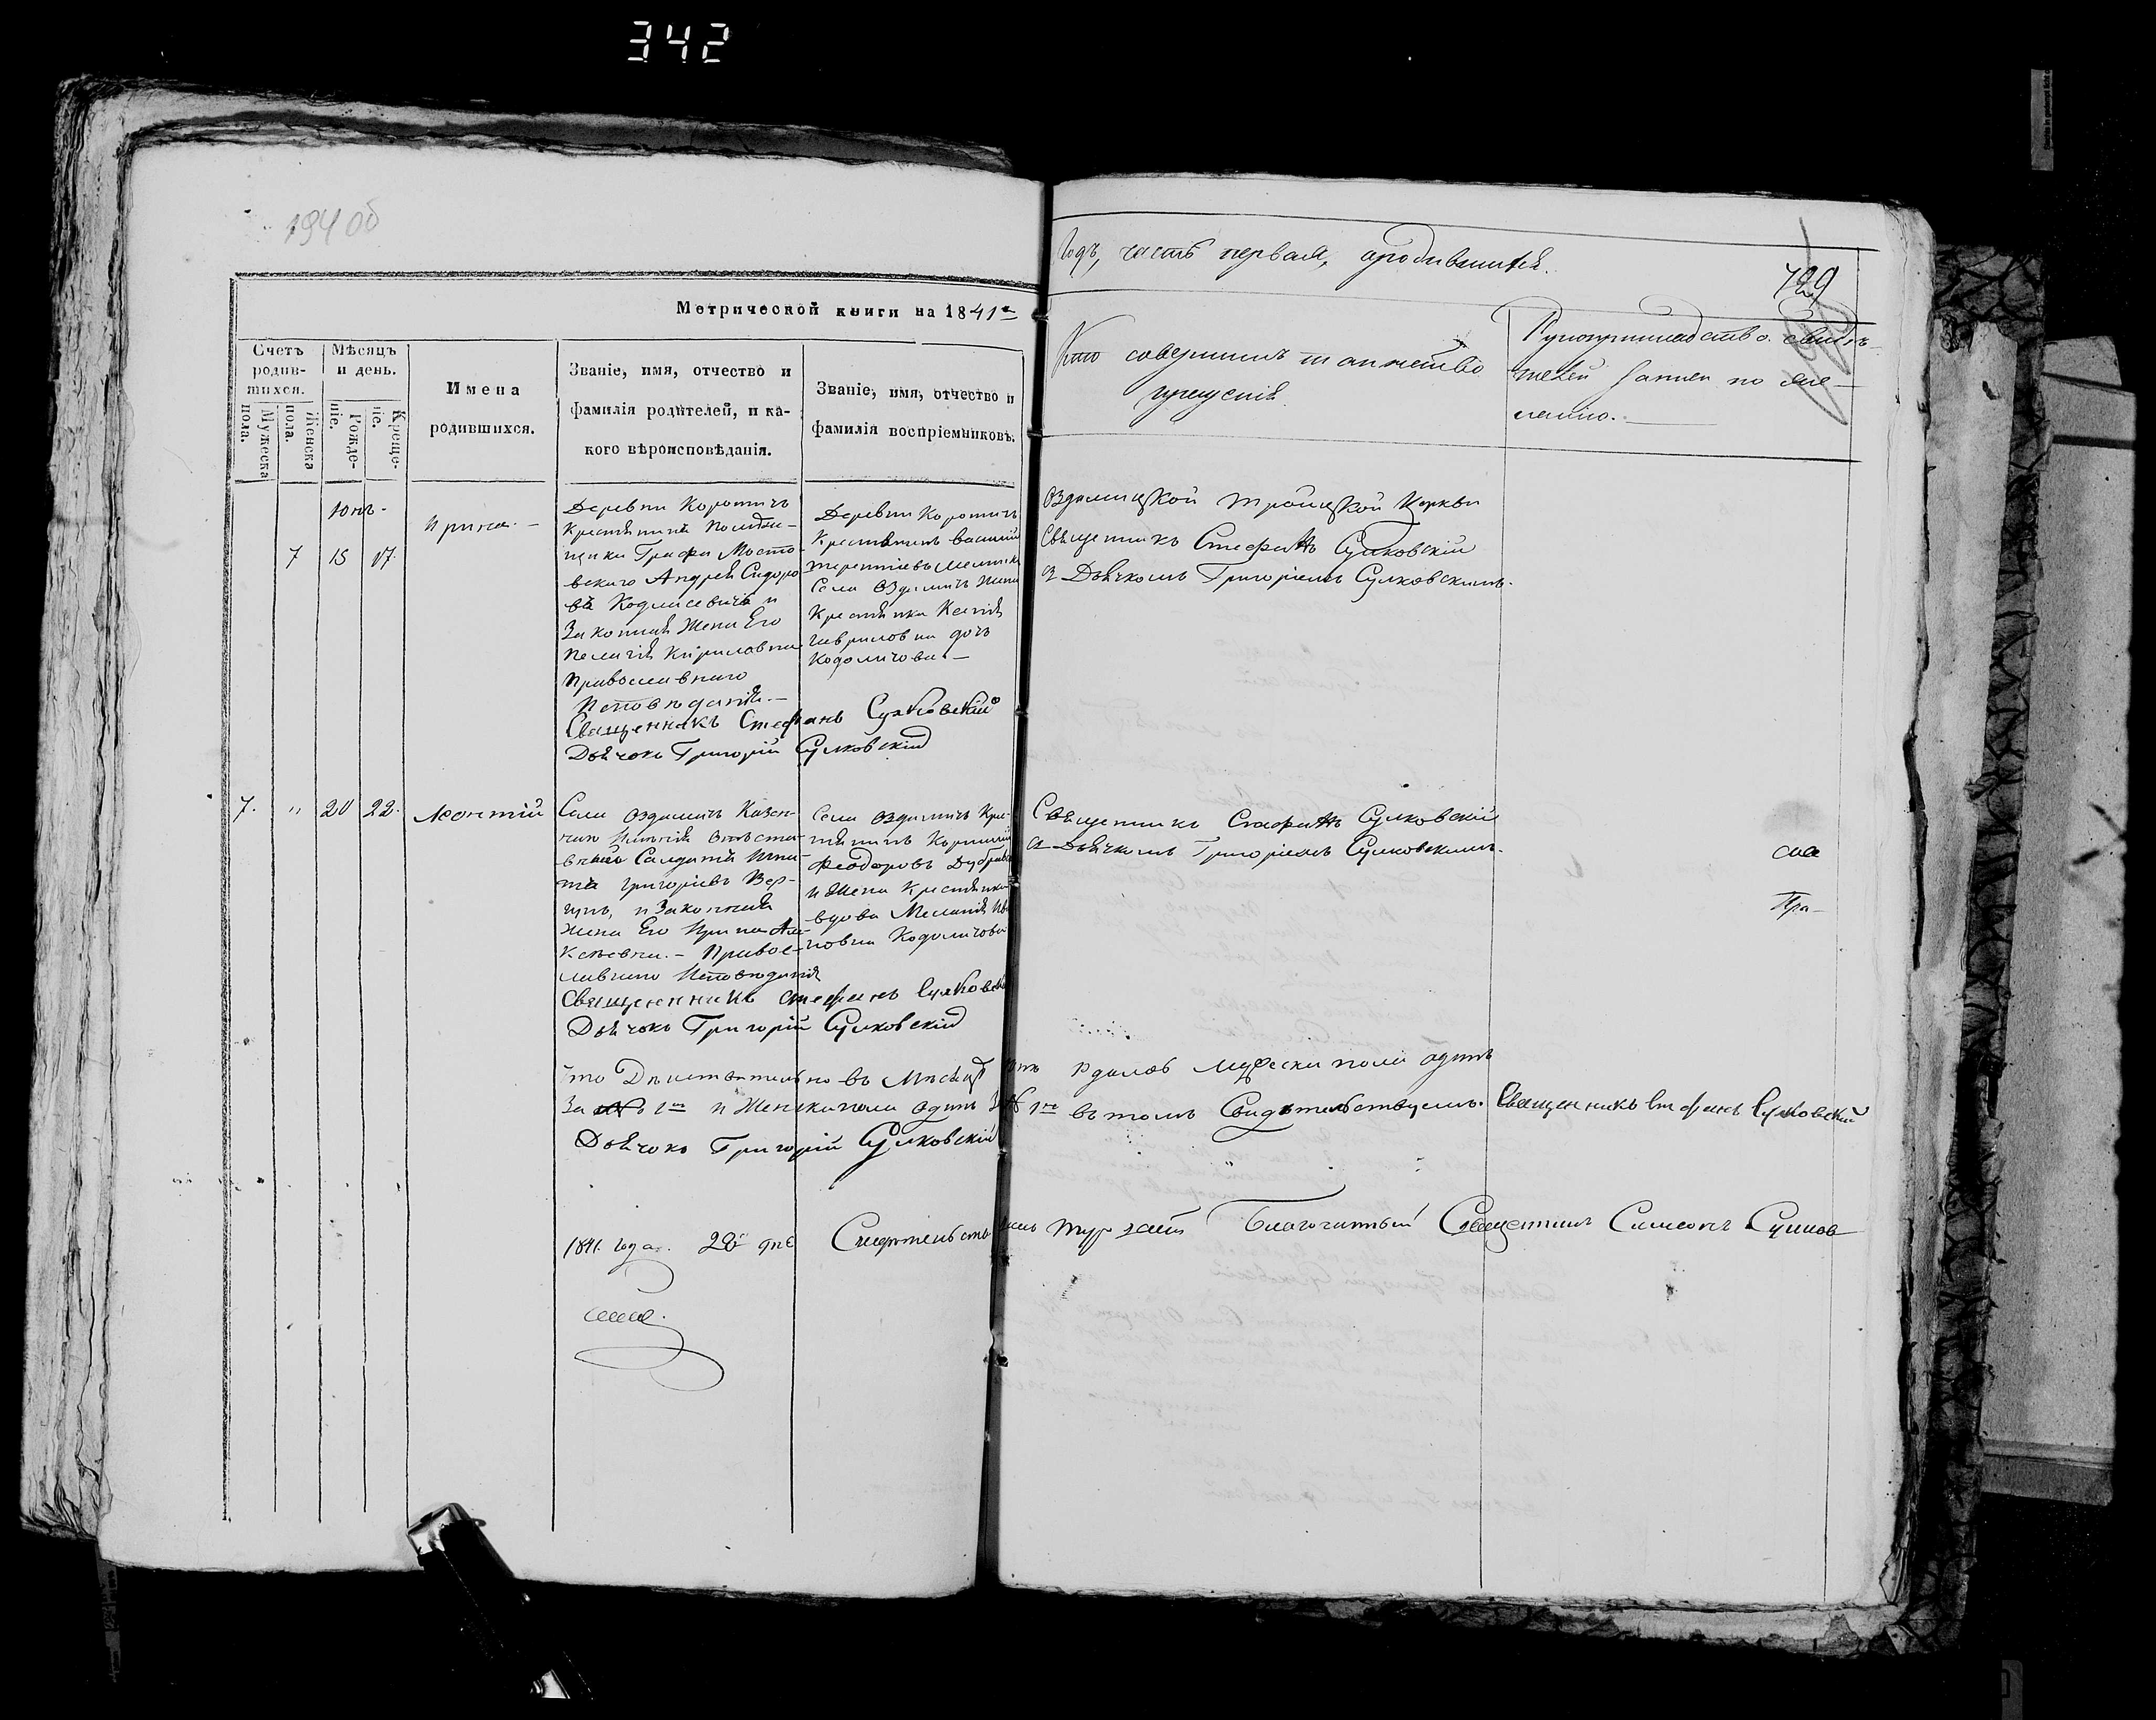 342
194 об
Метрической книги на 1841го
Годъ, часть первая, о родившихся.
729
Счетъ родив-шихся.
Мужеска пола.
Женска пола.
Мѣсяцъ и день.
Рожде-ніе.
Креще-ніе.
Имена
родившихся.
Званіе, имя, отчество и
фамилія родителей, и ка-
кого вѣроисповѣданія.
Званіе, имя, отчество и
фамилія воспріемниковъ.
Кто совершилъ таинство
крещенія
Рукоприкладство свидѣ-
телей записи по же-
ланію.
Юнь
7 15 17
Ирина
Деревни Коротичъ
Крестьянина Помѣ
щика Графа Мосто
вскаго Андрея Сидоро
ва и
Законная Жена Его
Пелагія Кирилловна
Православнаго
Исповѣданія.
Священникъ Стефанъ Сулковскій
Дьячокъ Григорій Сулковскій
Деревни Коротичъ
Крестьянинъ Василій
Терентіевъ
Села Оздамичъ Жена
Крестьянка Ксенія
Гавриловна дочь
Оздамицкой Троицкой Церкви
Священникъ Стефанъ Сулковскій
з Дьячкомъ Григоріемъ Сулковскимъ.
7. " 20 22.
Леонтій
Села Оздамичъ Казен-
наго Имѣнія
Солдата Игна
та Григоріевъ Вер-
гунъ, и Законная
Жена Его Ирина Але
ксѣевна. - Правос-
лавнаго Исповѣданія
Священникъ Стефанъ Сулковскій
Дьячокъ Григорій Сулковскій
Села Оздамичъ Кре-
стьянинъ Корнилій
Феодоровъ
и Жена Крестьянка
вдова Меланія Ива
новна
Священникъ Стефанъ Сулковскій
з Дьячкомъ Григоріемъ Сулковскимъ.
Что Дѣйствительно въ Мѣсяцѣ Мужеска пола одинъ
За № 1м и Женска пола одинъ За № 1м въ томъ Свидѣтельствуемъ. Священникъ Стефанъ Сулковскій
Дьячокъ Григорій Сулковскій
1841. года. 28 дня Благочинный Священникъ Симеонъ